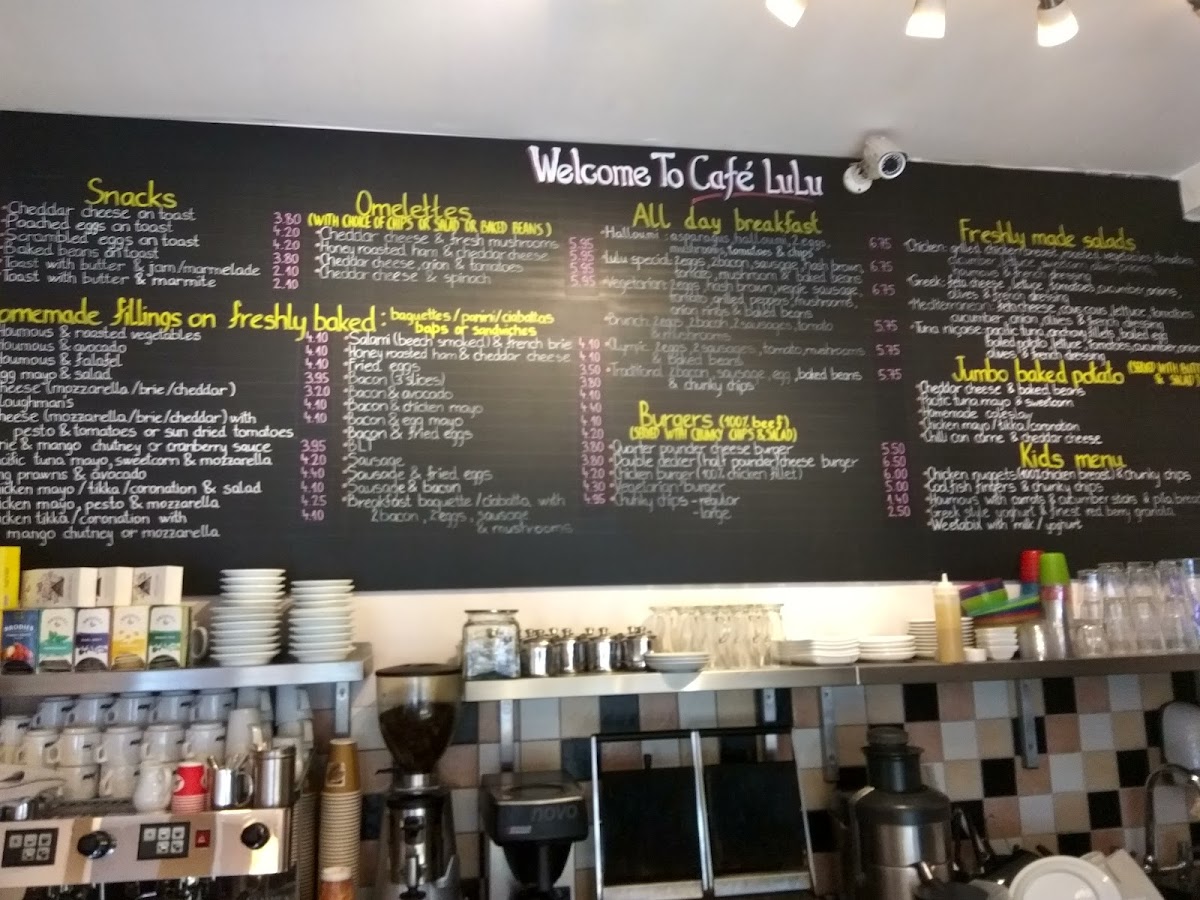 Welcome To Café LuLu
Snacks
Cheddar cheese on toast 3.80
Poached eggs on toast 4.20
Scrambled eggs on toast 4.20
Baked beans on toast 3.80
Toast with butter & jam/marmelade 2.10
Toast with butter & marmite 2.10
Omelettes
(WITH CHOICE OF CHIPS OR SALAD OR BAKED BEANS)
Cheddar cheese & fresh mushrooms 5.95
Honey roasted ham & cheddar cheese 5.95
Cheddar cheese, onion & tomatoes 5.95
Cheddar cheese & spinach 5.95
omemade fillings on freshly baked: baguettes/panini/ciabattas
baps or sandwiches
oumous & roasted vegetables 4.10
oumous & avocado 4.10
oumous & falafel 4.10
gg mayo & salad 3.95
heese (mozzarella/brie/cheddar) 3.20
loughman's 4.10
heese (mozzarella/brie/cheddar) with 4.10
pesto & tomatoes or sun dried tomatoes
rie & mango chutney or cranberry sauce 3.95
cific tuna mayo, sweetcorn & mozzarella 4.20
ng prawns & avocado 4.40
icken mayo/tikka/coronation & salad 4.10
icken mayo, pesto & mozzarella 4.25
icken tikka/coronation with 4.10
mango chutney or mozzarella
Salami (beech smoked) & french brie 4.10
Honey roasted ham & cheddar cheese 4.10
Fried eggs 3.50
Bacon (3 slices) 3.80
Bacon & avocado 4.10
Bacon & chicken mayo 4.40
Bacon & egg mayo 4.10
Bacon & fried eggs 4.20
BLT 3.80
Sausage 3.80
Sausage & fried eggs 4.20
Sausage & bacon 4.30
Breakfast baguette/ciabatta with 4.95
2 bacon, 2 eggs, sausage
& mushrooms
All day breakfast
Halloumi: asparagus, halloumi, 2 eggs, 6.75
mushrooms, tomatoes & chips
Lulu special: 2 eggs, 2 bacon, sausage, hash brown, 6.75
tomato, mushroom & baked beans
Vegetarian: 2 eggs, hash brown, veggie sausage, 6.75
tomato, grilled peppers, mushrooms,
onion rings & baked beans
Brunch: 2 eggs, 2 bacon, 2 sausages, tomato 5.75
& mushrooms
Olympic: 2 eggs, 2 sausages, tomato, mushrooms 5.75
& baked beans
Traditional: 2 bacon, sausage, egg, baked beans 5.75
& chunky chips
Burgers (100% beef)
(SERVED WITH CHUNKY CHIPS & SALAD)
Quarter pounder cheese burger 5.50
Double decker (half pounder) cheese burger 6.50
Chicken burger (100% chicken fillet) 6.00
Vegetarian burger 5.00
Chunky chips - regular 1.40
- large 2.50
Freshly made salads
Chicken: grilled chicken breast, roasted vegetables,
houmous & french dressing
Greek: feta cheese, lettuce, tomatoes, cucumber, onions,
olives & french dressing
Mediterranean: feta cheese, couscous, lettuce, tomatoes,
cucumber, onion, olives & french dressing
Tuna niçoise: pacific tuna, anchovy fillets, boiled egg,
baked potato, lettuce, tomatoes, cucumber, onion
olives & french dressing
Jumbo baked potato (SERVED WITH BUTT
& SALAD
Cheddar cheese & baked beans
Pacific tuna mayo & sweetcorn
Homemade coleslaw
Chicken mayo/tikka/coronation
Chilli con carne & cheddar cheese
Kids menu
Chicken nuggets (100% chicken breast) & chunky chips
Cod fish fingers & chunky chips
Houmous with carrots & cucumber sticks & pita bread
Greek style yoghurt & finest red berry granola
Weetabix with milk/yoghurt
BRODIES
novo